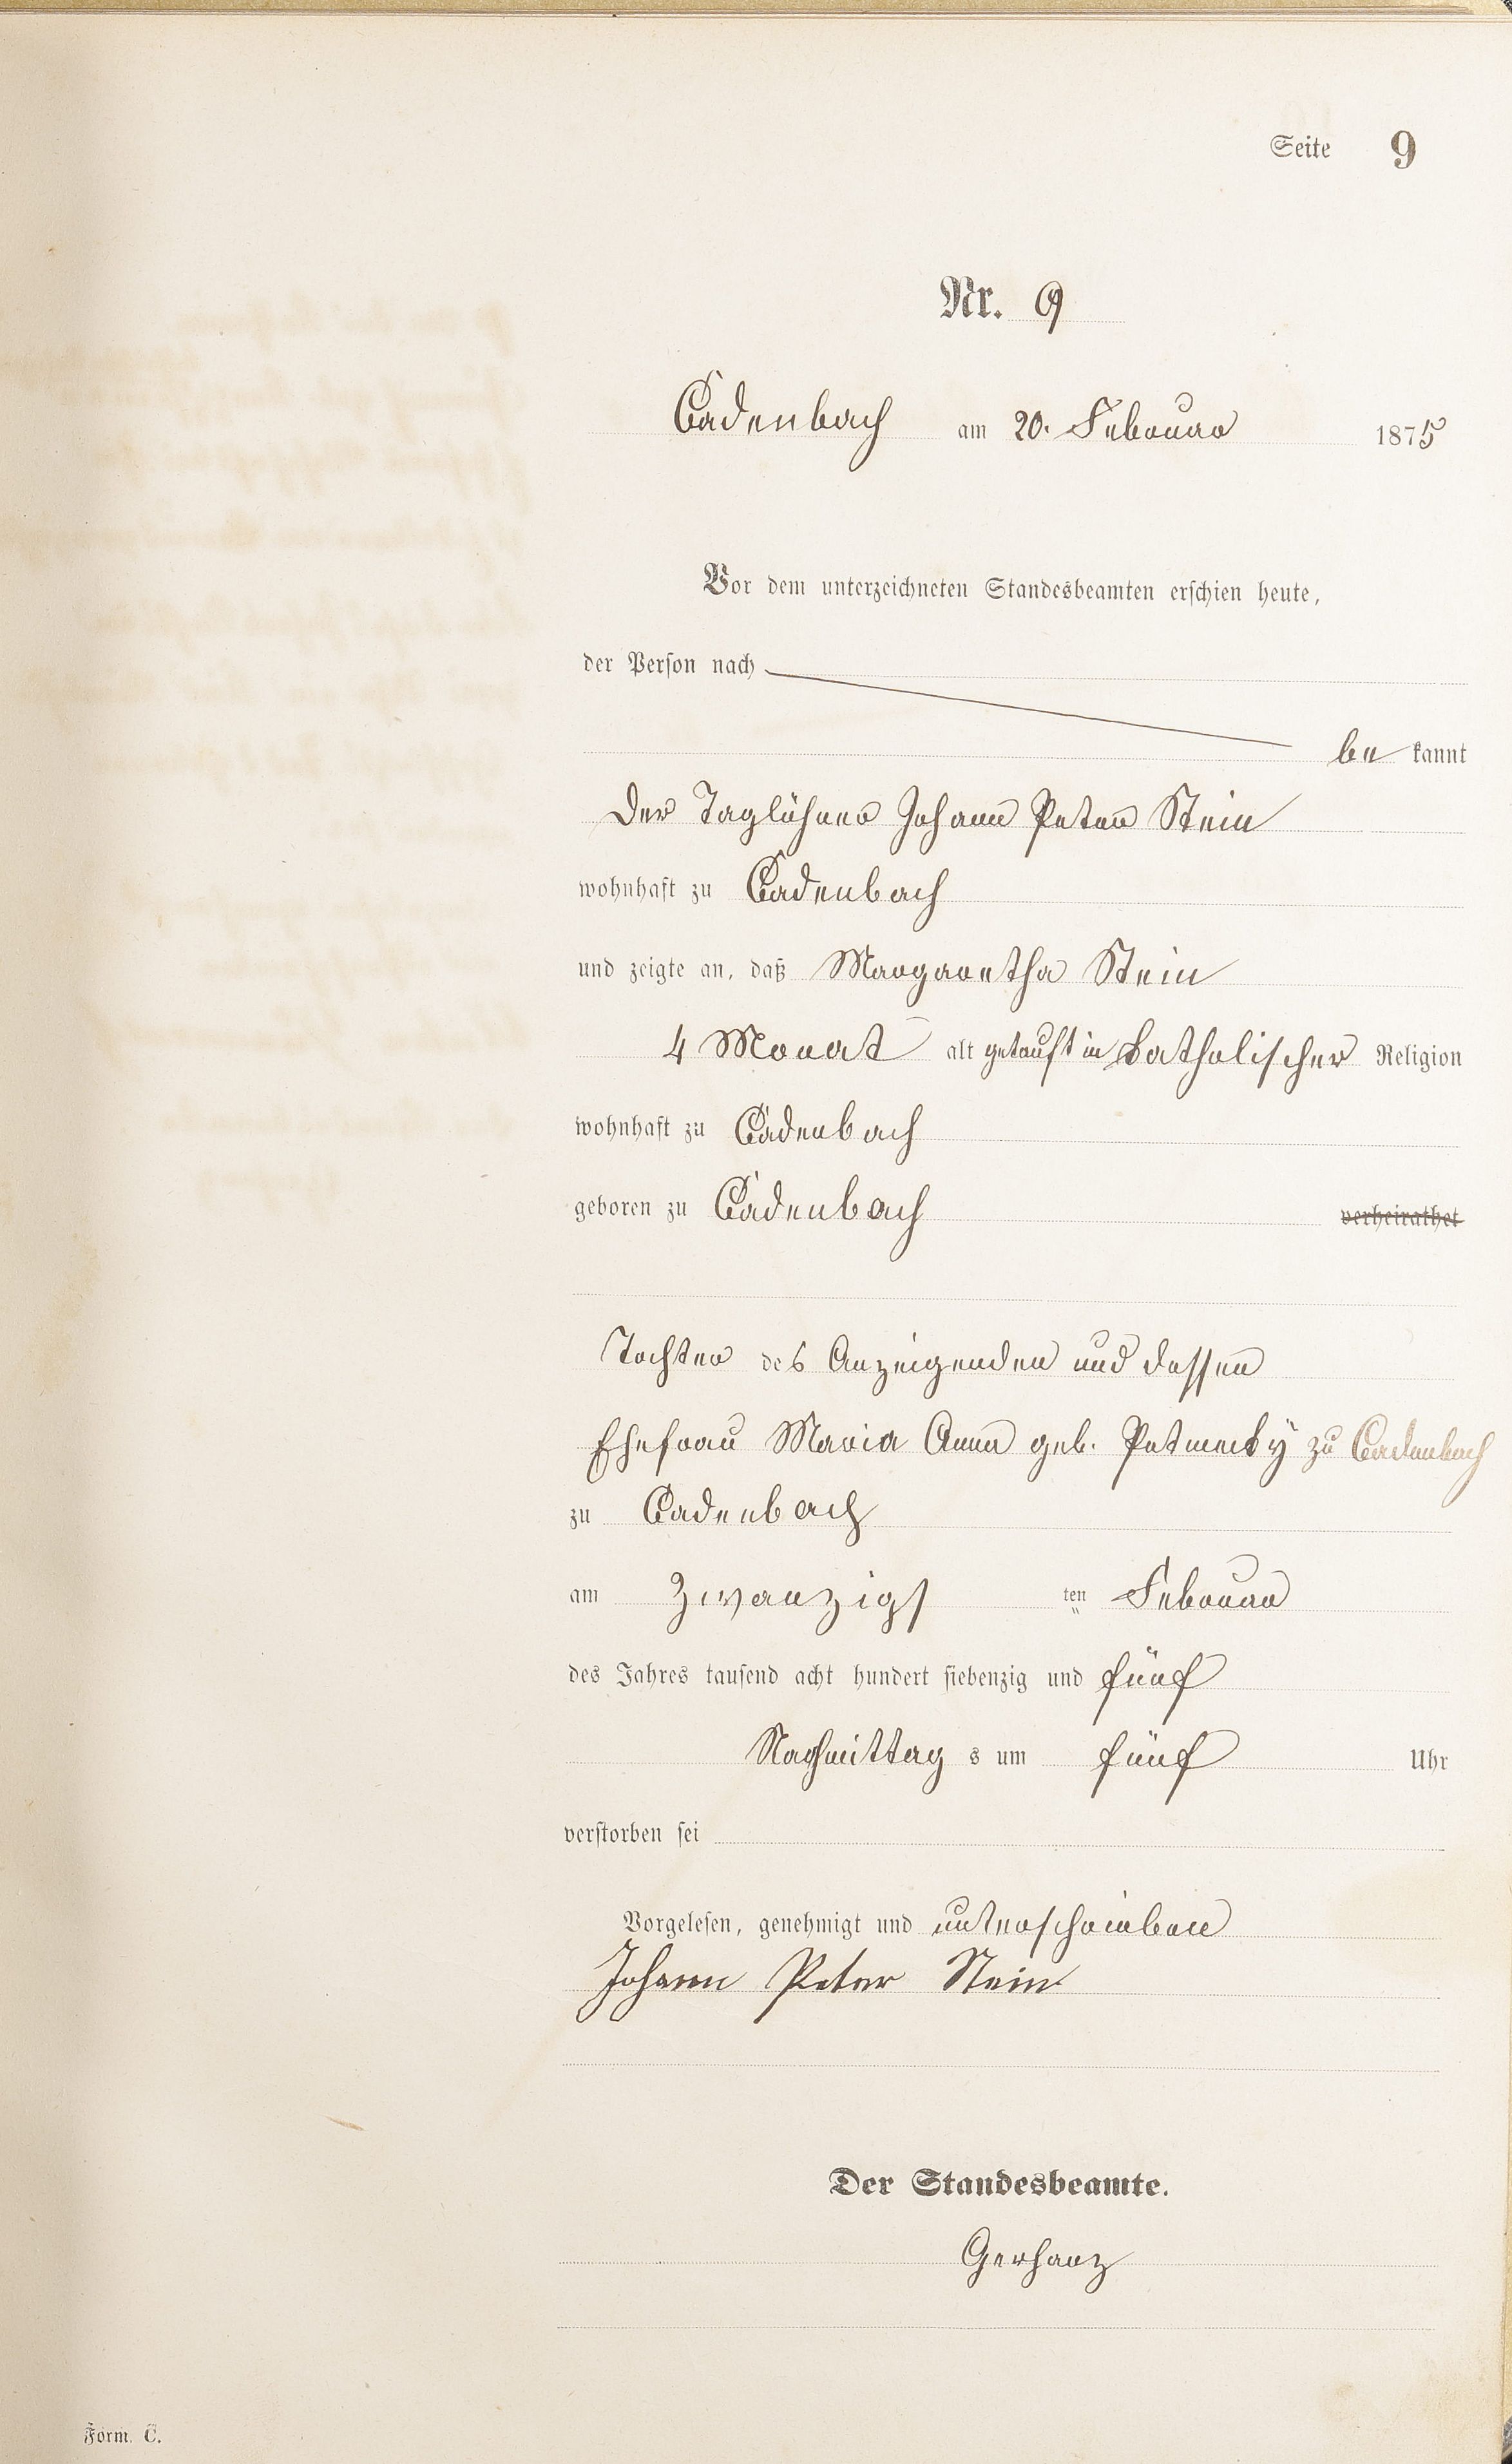 Seite 9
Nr. 9
Cadenbach am 20. Februar 1875
Vor dem unterzeichneten Standesbeamten erschien heute,
der Person nach
be kannt
der Taglöhner Johann Peter Stein
wohnhaft zu Cadenbach
und zeigte an, daß Margaretha Stein
4 Monat alt getauft in katholischer Religion
wohnhaft zu Cadenbach
geboren zu Cadenbach verheirathet
Tochter des Anzeigenden und dessen
Ehefrau Maria Anna geb. Petmecky zu Cadenbach
zu Cadenbach
am Zwanzigs ten Februar
des Jahres tausend acht hundert siebenzig und fünf
Nachmittag s um fünf Uhr
verstorben sei
Vorgelesen, genehmigt und unterschrieben
Johann Peter Stein
Der Standesbeamte.
Gerharz
Form. C.